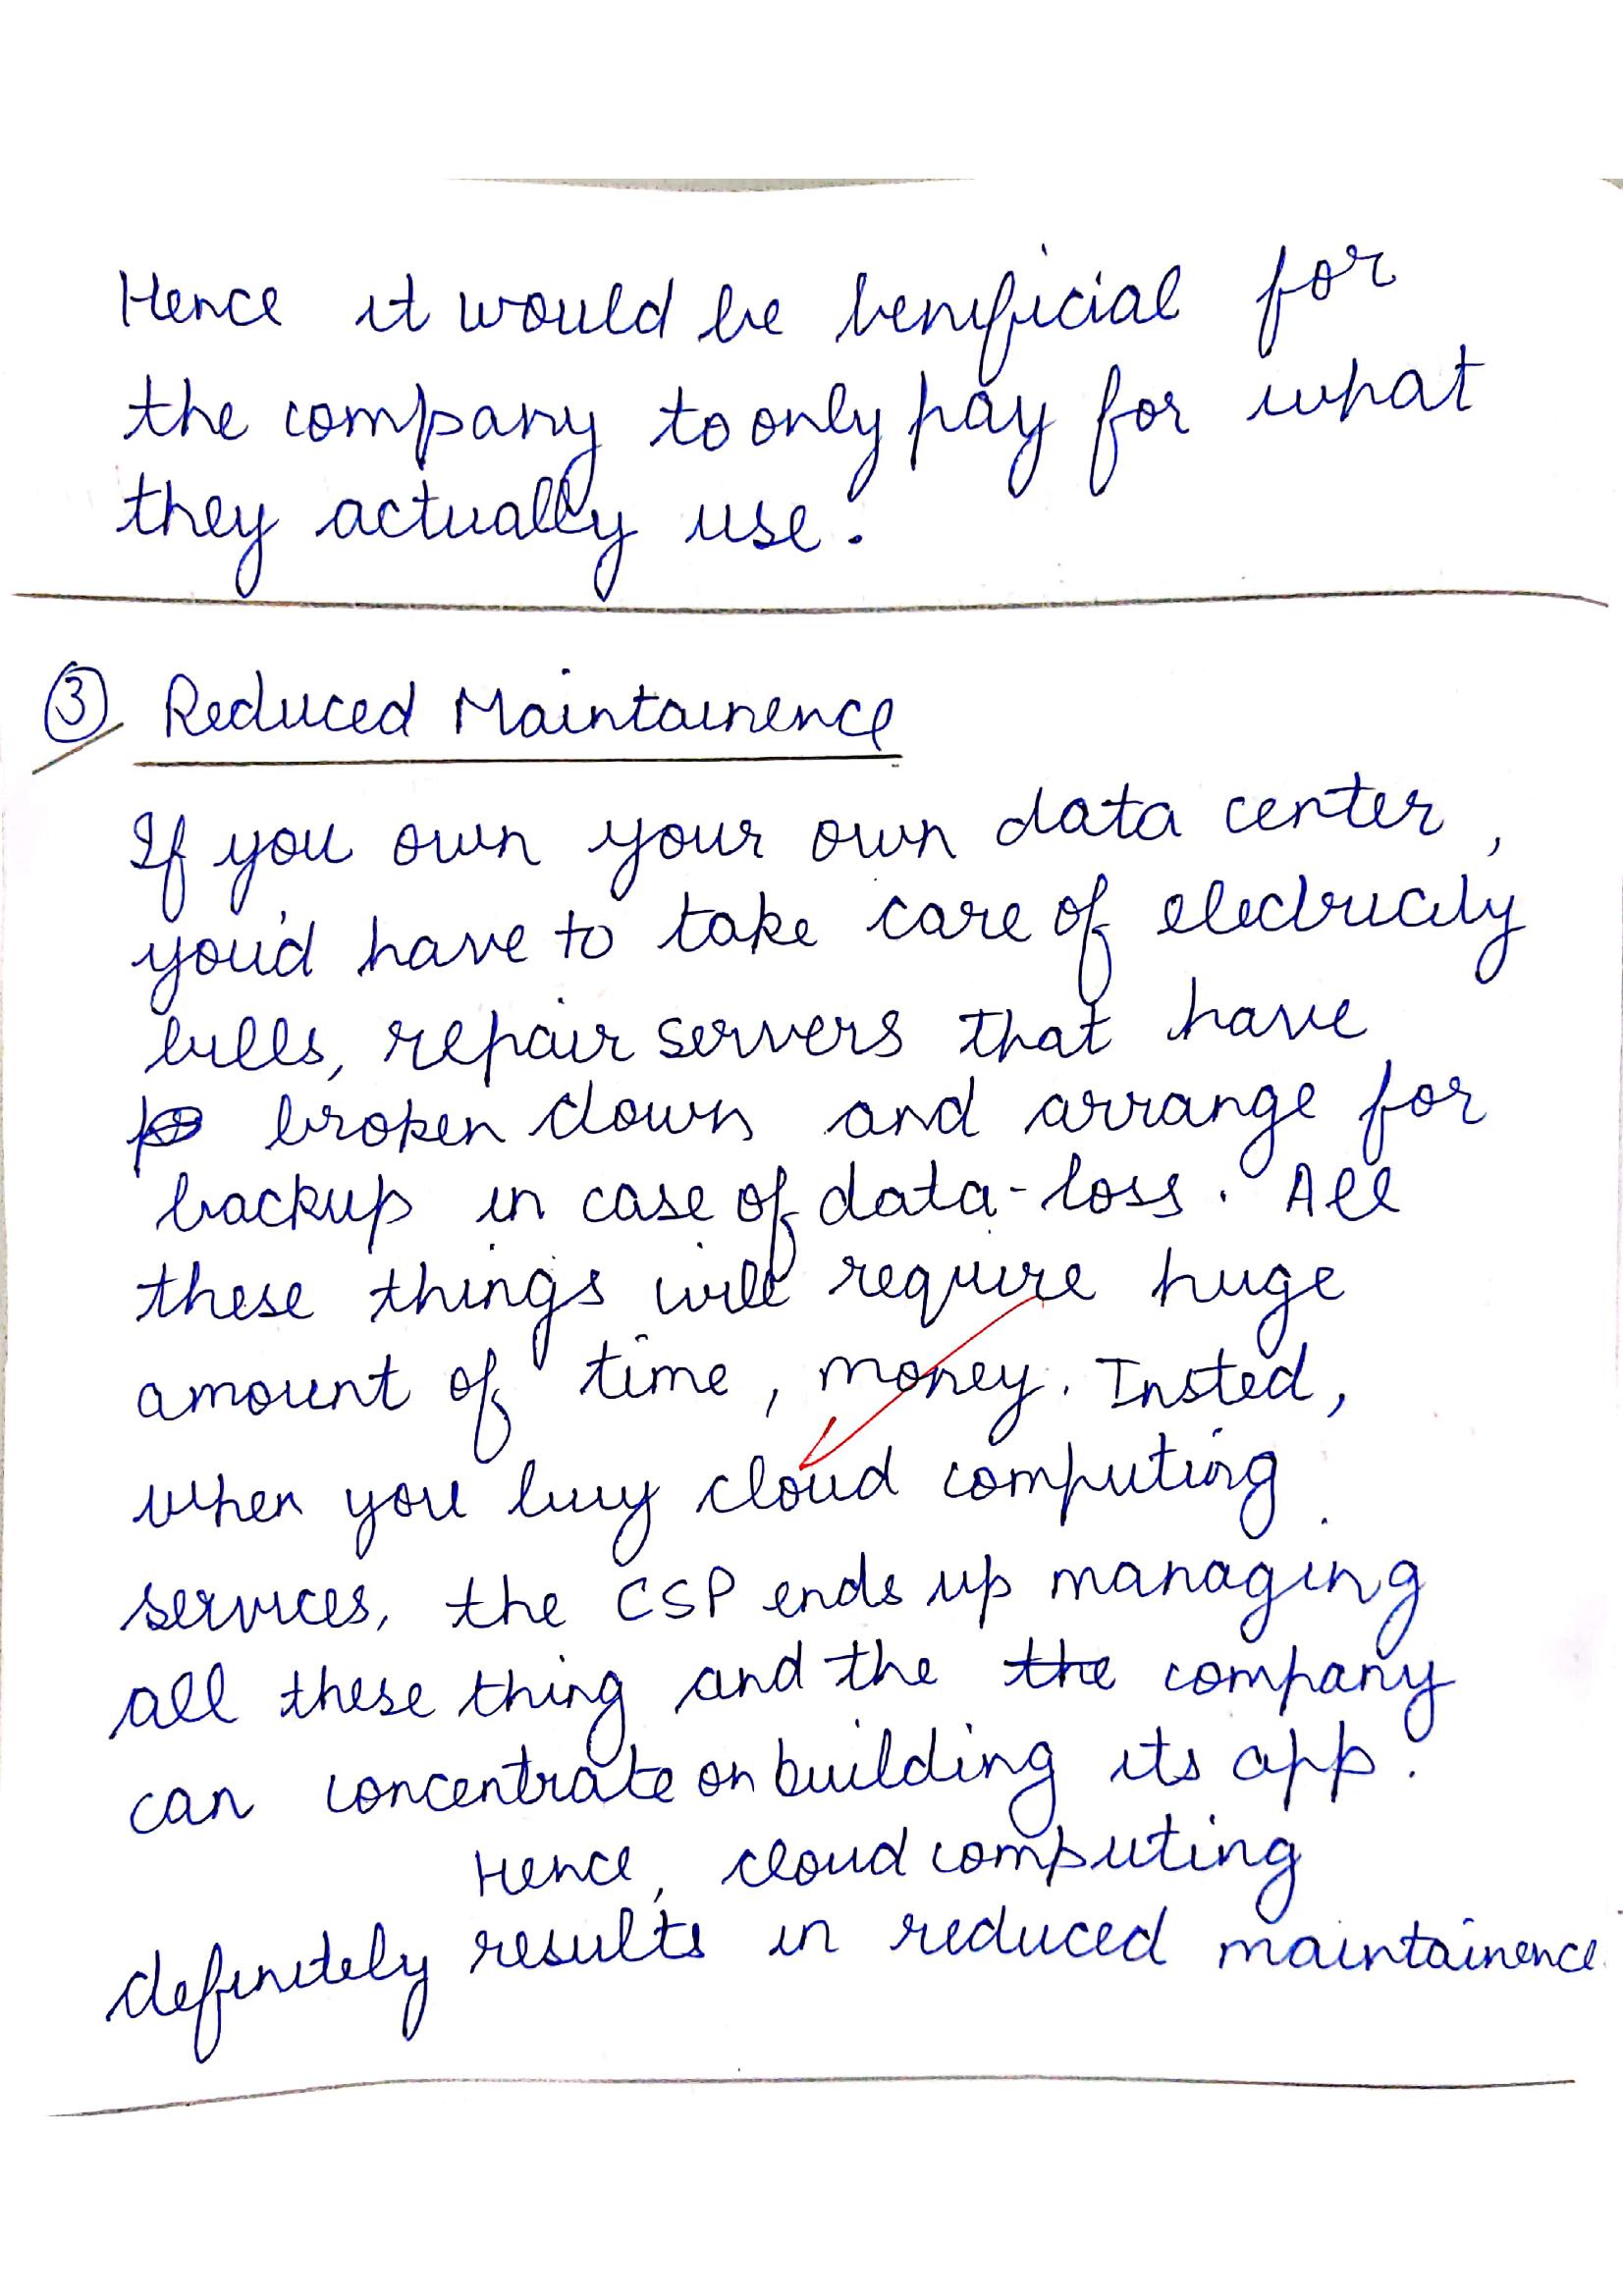 Hence it would be benificial for
the company to only pay for what
they actually use.
③ Reduced Maintainence
If you own your own data center,
you'd have to take care of electricity
bills, repair servers that have
broken down and arrange for
backup in case of data-loss. All
these things will require huge
amount of time, money. Insted,
when you buy cloud computing
services, the CSP ends up managing
all these thing and the the company
can concentrate on building its app.
Hence, cloud computing
definitely results in reduced maintainence.